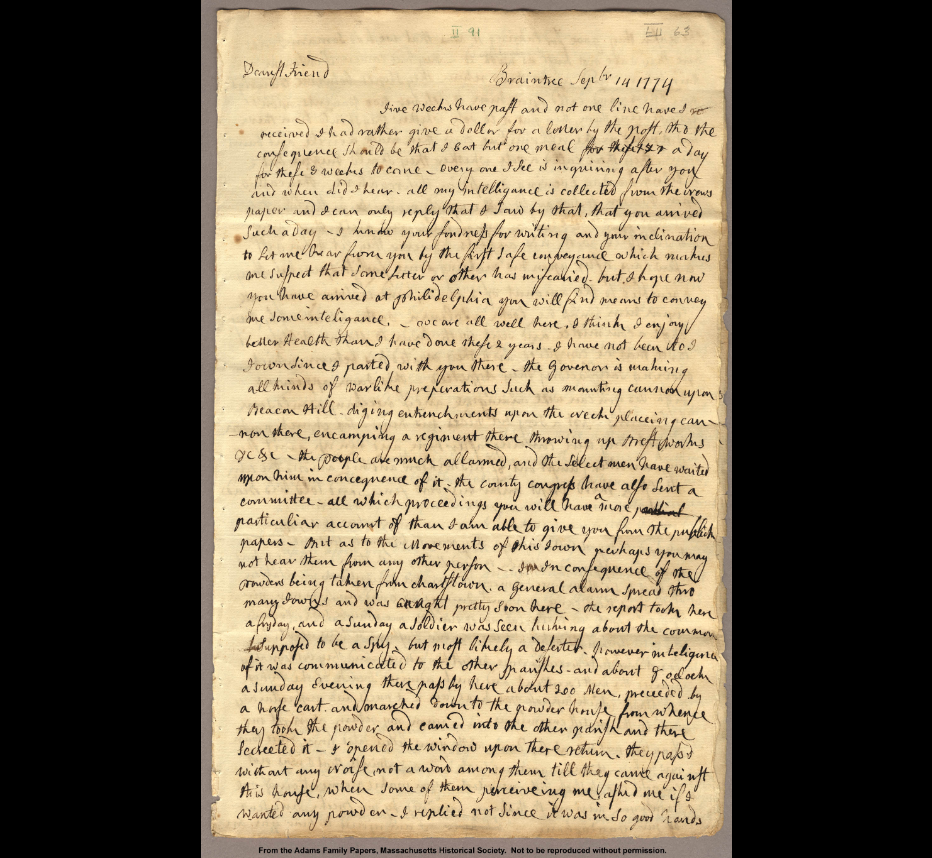 II 91
63
Dearest Friend
Braintree Sepbr 14 1774
five weeks have past and not one line have I
received I had rather give a dollar for a letter by the post, tho the
consequence should be that I Eat but one meal a day
for these 3 weeks to come - every one I see is inquiring after you
and when did I hear - all my intelligance is collected from the news
paper and I can only reply that I saw by that, that you arrived
such a day - I know your fondness for writing and your inclination
to let me hear from you by the first safe conveyance which makes
me suspect that some Letter or other has miscaried. but I hope now
you have arrived at philidelphia you will find means to convey
me some inteligance. - we are all well here. I think I enjoy
better Health than I have done these 2 years - I have not been to
Town since I parted with you there - the Govenor is making
all kinds of warlike preperations such as mounting cannon upon
Beacon Hill - diging entrenchments upon the neck placeing can-
non there, encamping a regiment there throwing up brest works
&c &c - the people are much allarmed, and the Selectmen have waited
upon him in concequence of it - the county congress have also sent a
committee - all which proceedings you will have a more
particuliar account of than I am able to give you from the publick
papers - But as to the Movements of this Town perhaps you may
not hear them from any other person - In consequence of the
powders being taken from charlstown, a general alarm spread thro
many Towns and was caught pretty soon here - the report took here
a fryday, and a Sunday a soldier was seen lurking about the common
supposed to be a Spy - but most likely a deserter. however inteligence
of it was communicated to the other parishes - and about 8 o clock
a Sunday Evening there pass by here about 200 Men, preceeded by
a horse cart. and marched down to the powder house from whence
they took the powder and carried into the other parish and there
secreeted it - I opened the window upon there return. they pass'd
without any Noise, not a word among them till they came against
this house, when some of them perceiveing me, asked me if I
wanted any powder - I replied not since it was in so good hands
From the Adams Family Papers, Massachusetts Historical Society. Not to be reproduced without permission.